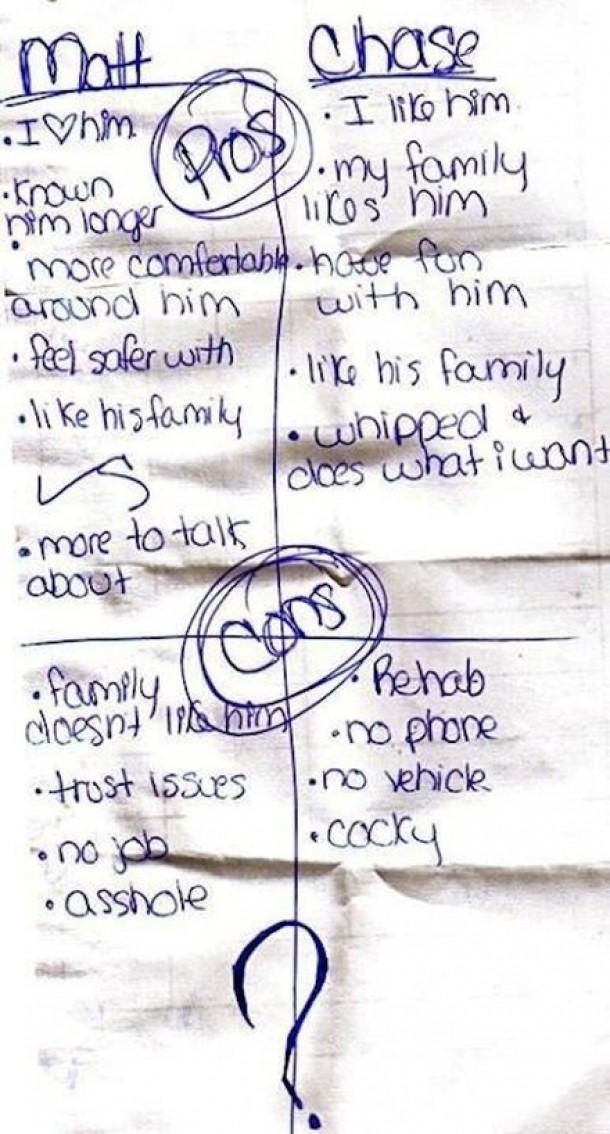 Matt
Pros
• I ♡ him
• Known
him longer
• more comfertable
around him
• feel safer with
• like his family
• more to talk
about
Chase
• I like him
• my family
likes him
• have fun
with him
• like his family
• whipped &
does what i want
Cons
• family
doesnt like him
• trust issues
• no job
• asshole
• Rehab
• no phone
• no vehicle
• cocky
?